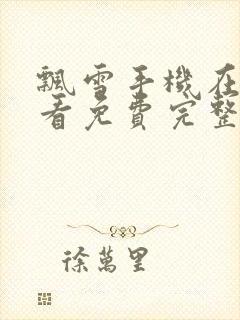 飄雪手機在
看免費完整
徐萬里